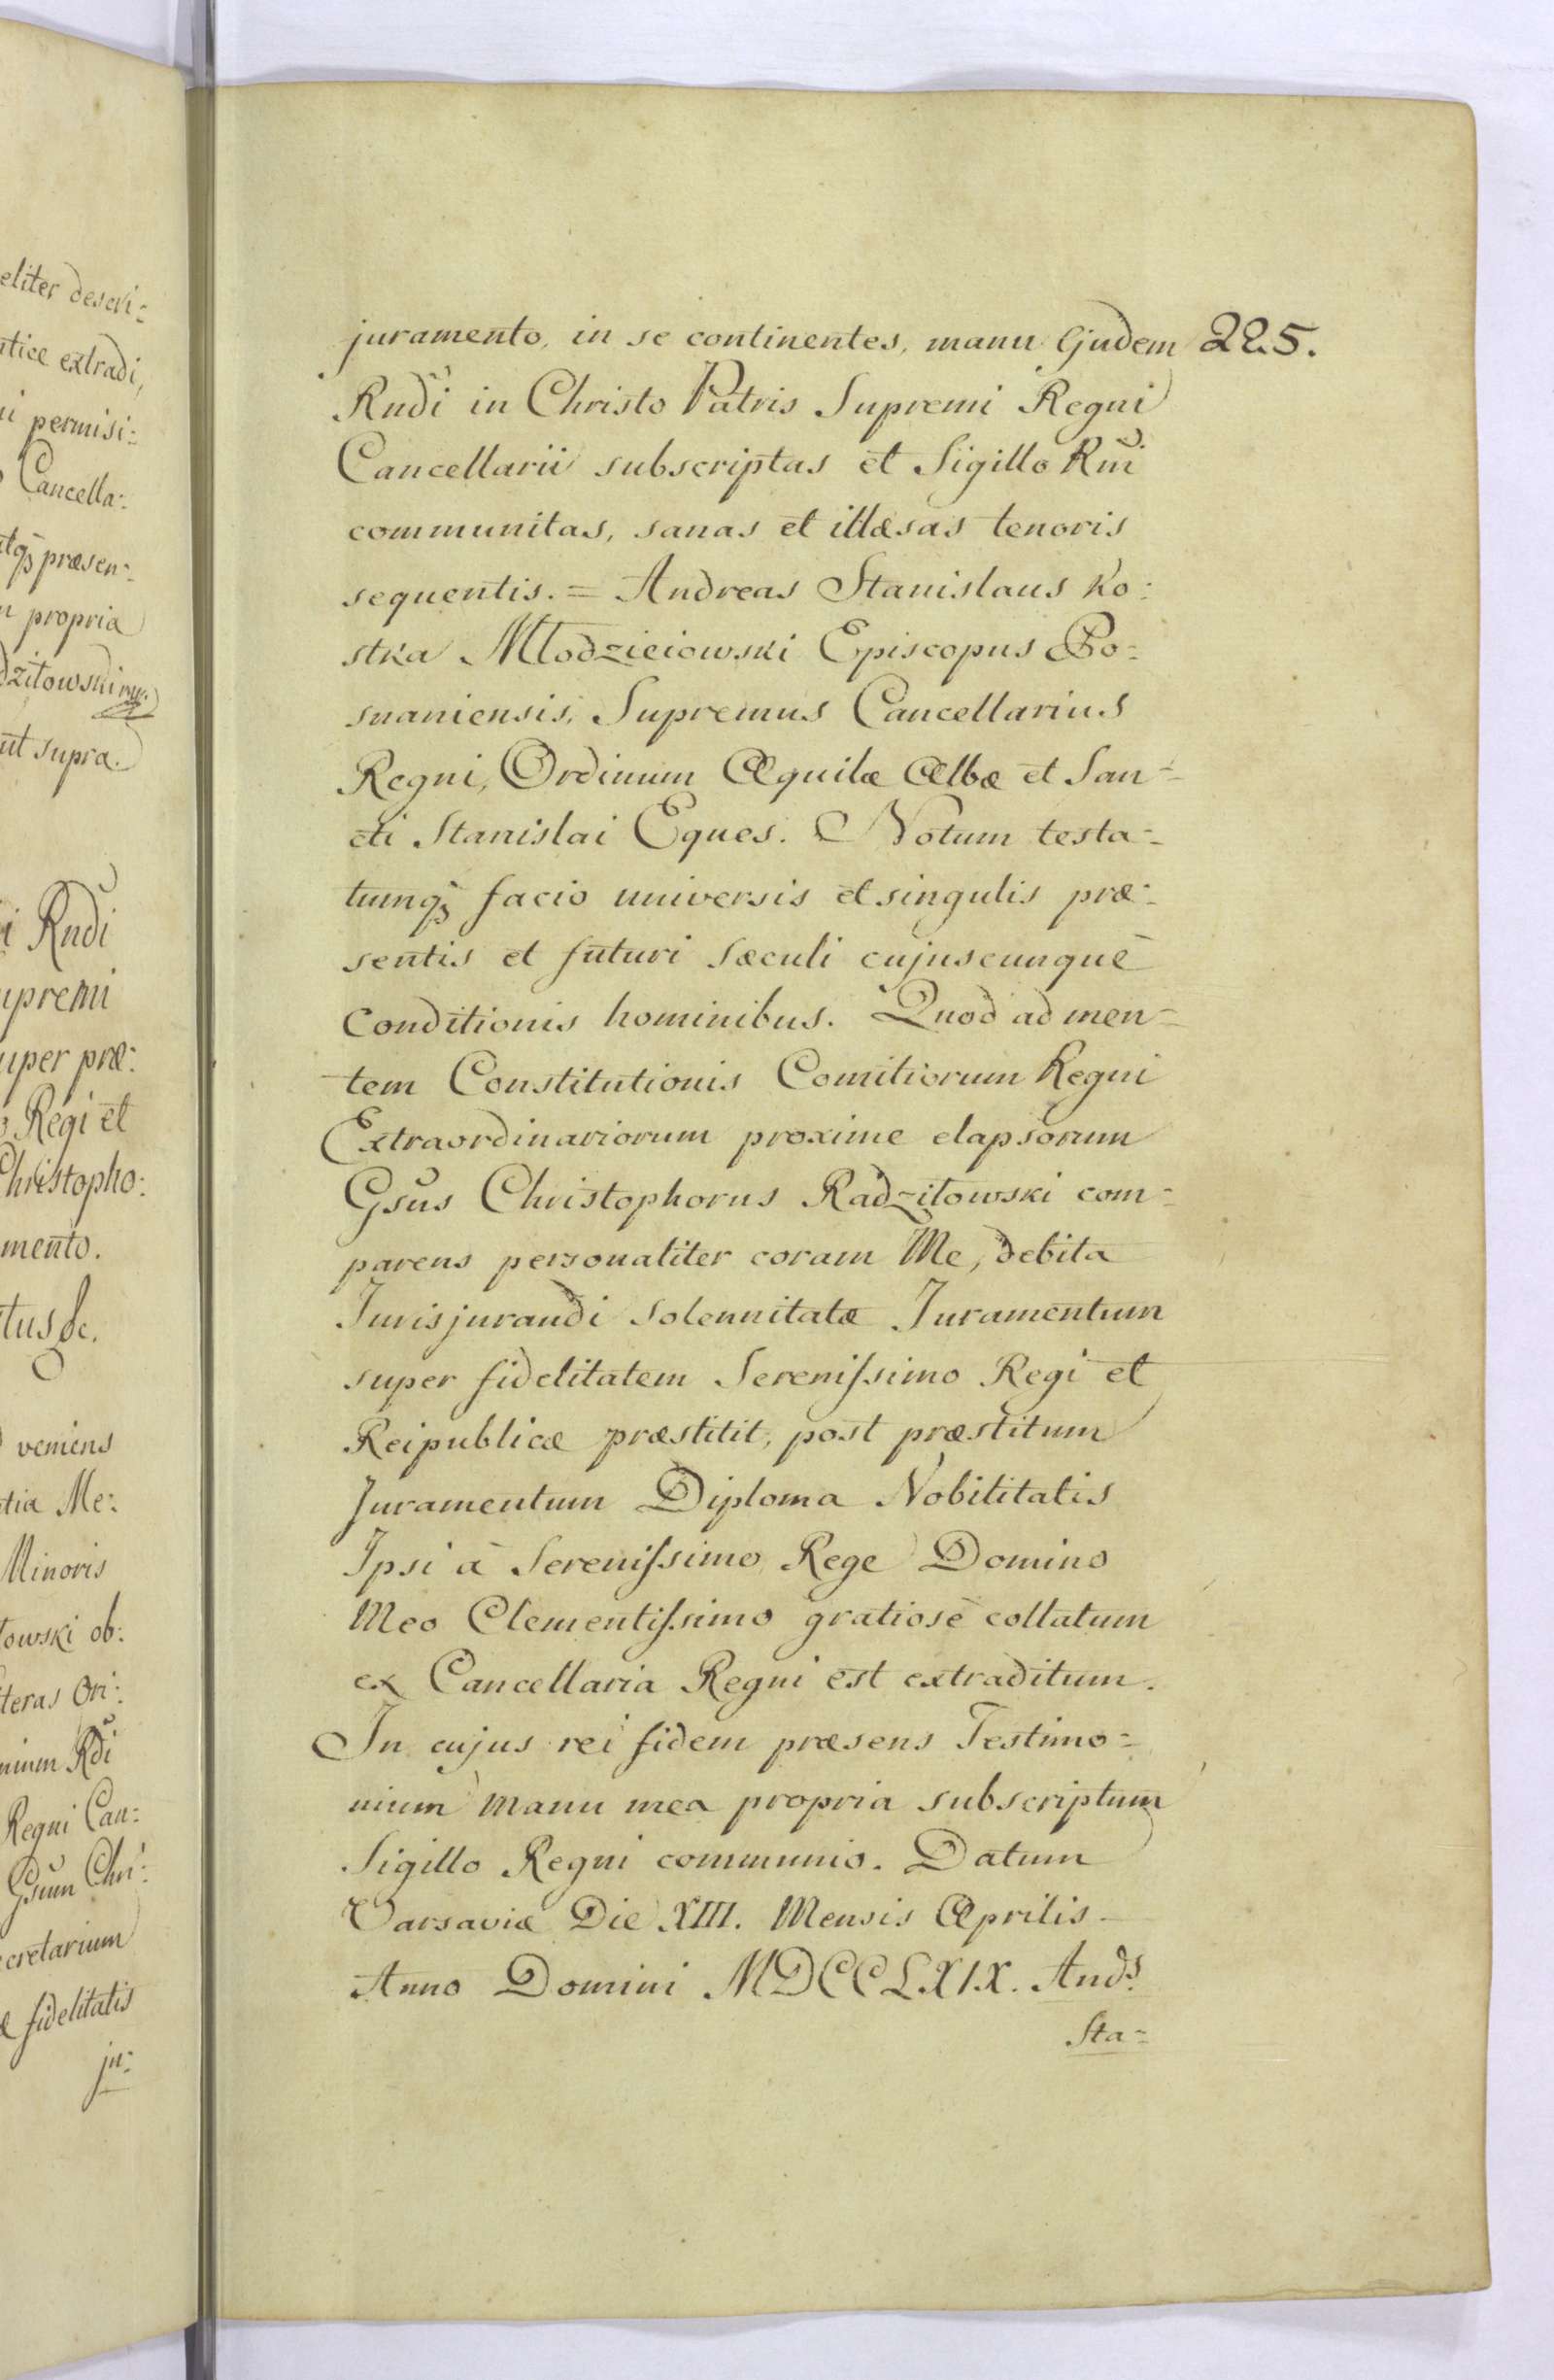 eliter descri:
tice extradi,
i permisi:
Cancella:
tqꝫ præsen:
propria
dzitowski mp.
ut supra.
i Rndi
upremi
uper præ:
Regi et
Christopho:
mento.
tus &c.
veniens
tia Me:
Minoris
towski ob:
teras Ori:
nium Rdi
Regni Can:
Gsum Chri:
ecretarium
æ fidelitatis
ju:
juramento, in se continentes, manu Ejudem 225.
Rndi in Christo Patris Supremi Regni
Cancellarii subscriptas et Sigillo Rni
communitas, sanas et illæsas tenoris
sequentis. = Andreas Stanislaus Ko:
stka Młodzieiowski Episcopus Po:
snaniensis, Supremus Cancellarius
Regni, Ordinum Aquilæ Albæ et San=
cti Stanislai Eques. Notum testa=
tumqꝫ facio universis et singulis præ:
sentis et futuri Sæculi cujuscunque
Conditionis hominibus. Quod ad men=
tem Constitutionis Comitiorum Regni
Extraordinariorum proxime elapsorum
Gsus Christophorus Radzitowski com=
parens personaliter coram Me, debita
Jurisjurandi Solennitatæ Juramentum
super fidelitatem Serenissimo Regi et
Reipublicæ præstitit, post præstitum
Juramentum Diploma Nobilitatis
Ipsi à Serenissimo Rege Domino
Meo Clementissimo gratiosè collatum
ex Cancellaria Regni est extraditum.
In cujus rei fidem præsens Testimo=
nium manu mea propria subscriptum
Sigillo Regni communio. Datum
Varsaviæ Die XIII. Mensis Aprilis
Anno Domini MDCCLXIX. Ands
Sta=